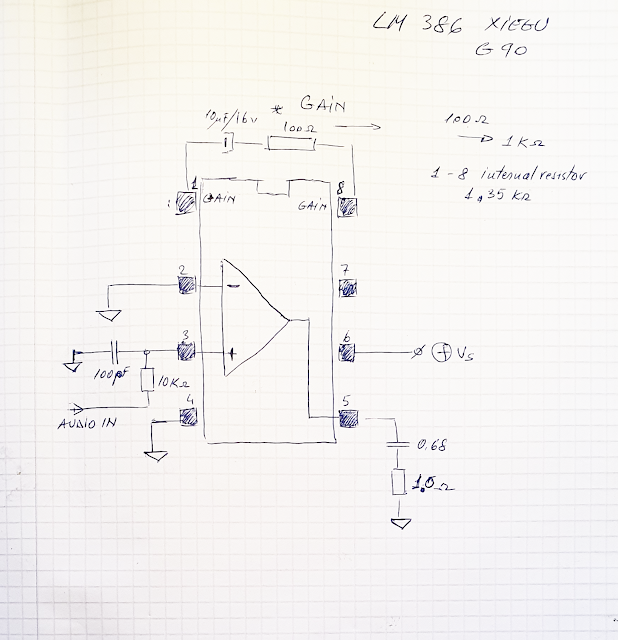 LM 386 XIEGU
G90
* GAIN
10µF/16v 100Ω
100Ω
1KΩ
1 - 8 internal resistor
1,35 KΩ
1 8
GAIN GAIN
2 7
-
3 6
+
+ Vs
100pF 10KΩ
4 5
AUDIO IN
0.68
1.0Ω